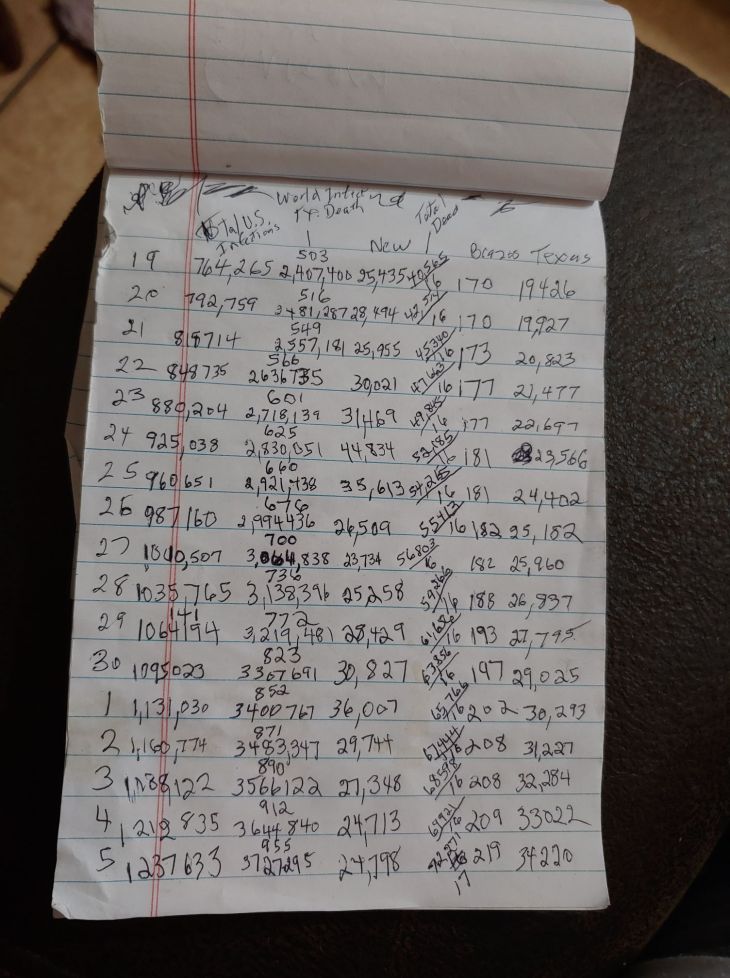 World Infection
Total U.S. Infections Tx. Death New Total Dead Brazos Texas
503
19 764,265 2,407,400 25,435 40,565/16 170 19426
516
20 792,759 2481,287 28,494 42,514/16 170 19,927
549
21 818714 2,557,181 25,955 45340/16 173 20,823
566
22 848735 2636735 30,021 47,663/16 177 21,477
601
23 880,204 2,718,139 31,469 49,885/16 177 22,697
625
24 925,038 2,830,051 44,834 52,185/16 181 23,566
660
25 960651 2,921,738 35,613 54,265/16 181 24,402
676
26 987160 2,994436 26,509 55413/16 182 25,182
700
27 1,010,507 3,064,838 23,734 56,803/16 182 25,960
736
28 1035,765 3,138,396 25258 59,266/16 188 26,837
772
29 1064194 3,219,481 28,429 61,686/16 193 27,795
823
30 1095023 3307691 30,827 63,856/16 197 29,025
852
1 1,131,030 3400767 36,007 65,766/16 202 30,293
871
2 1,160,774 3483,347 29,744 67444/16 208 31,227
890
3 1,188,122 3566122 27,348 68598/16 208 32,284
912
4 1,212 835 3644840 24,713 69921/16 209 33022
955
5 1237633 3727295 24,798 72,271 219 34220
17